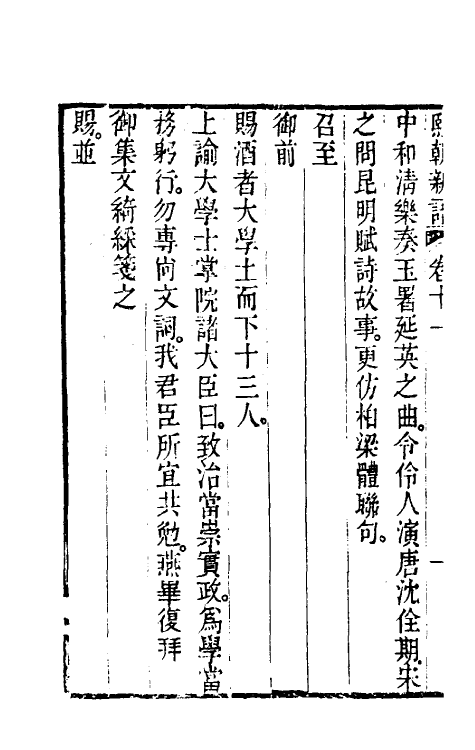 熙朝新語 卷十一
中和清樂奏玉署延英之曲。令伶人演唐沈佺期宋
之問昆明賦詩故事。更仿柏梁體聯句。
召至
御前
賜酒者大學士而下十三人。
上諭大學士掌院諸大臣曰。致治當崇實政。爲學當
務躬行。勿專尙文詞。我君臣所宜共勉。燕畢復拜
御集文綺綵箋之
賜。並